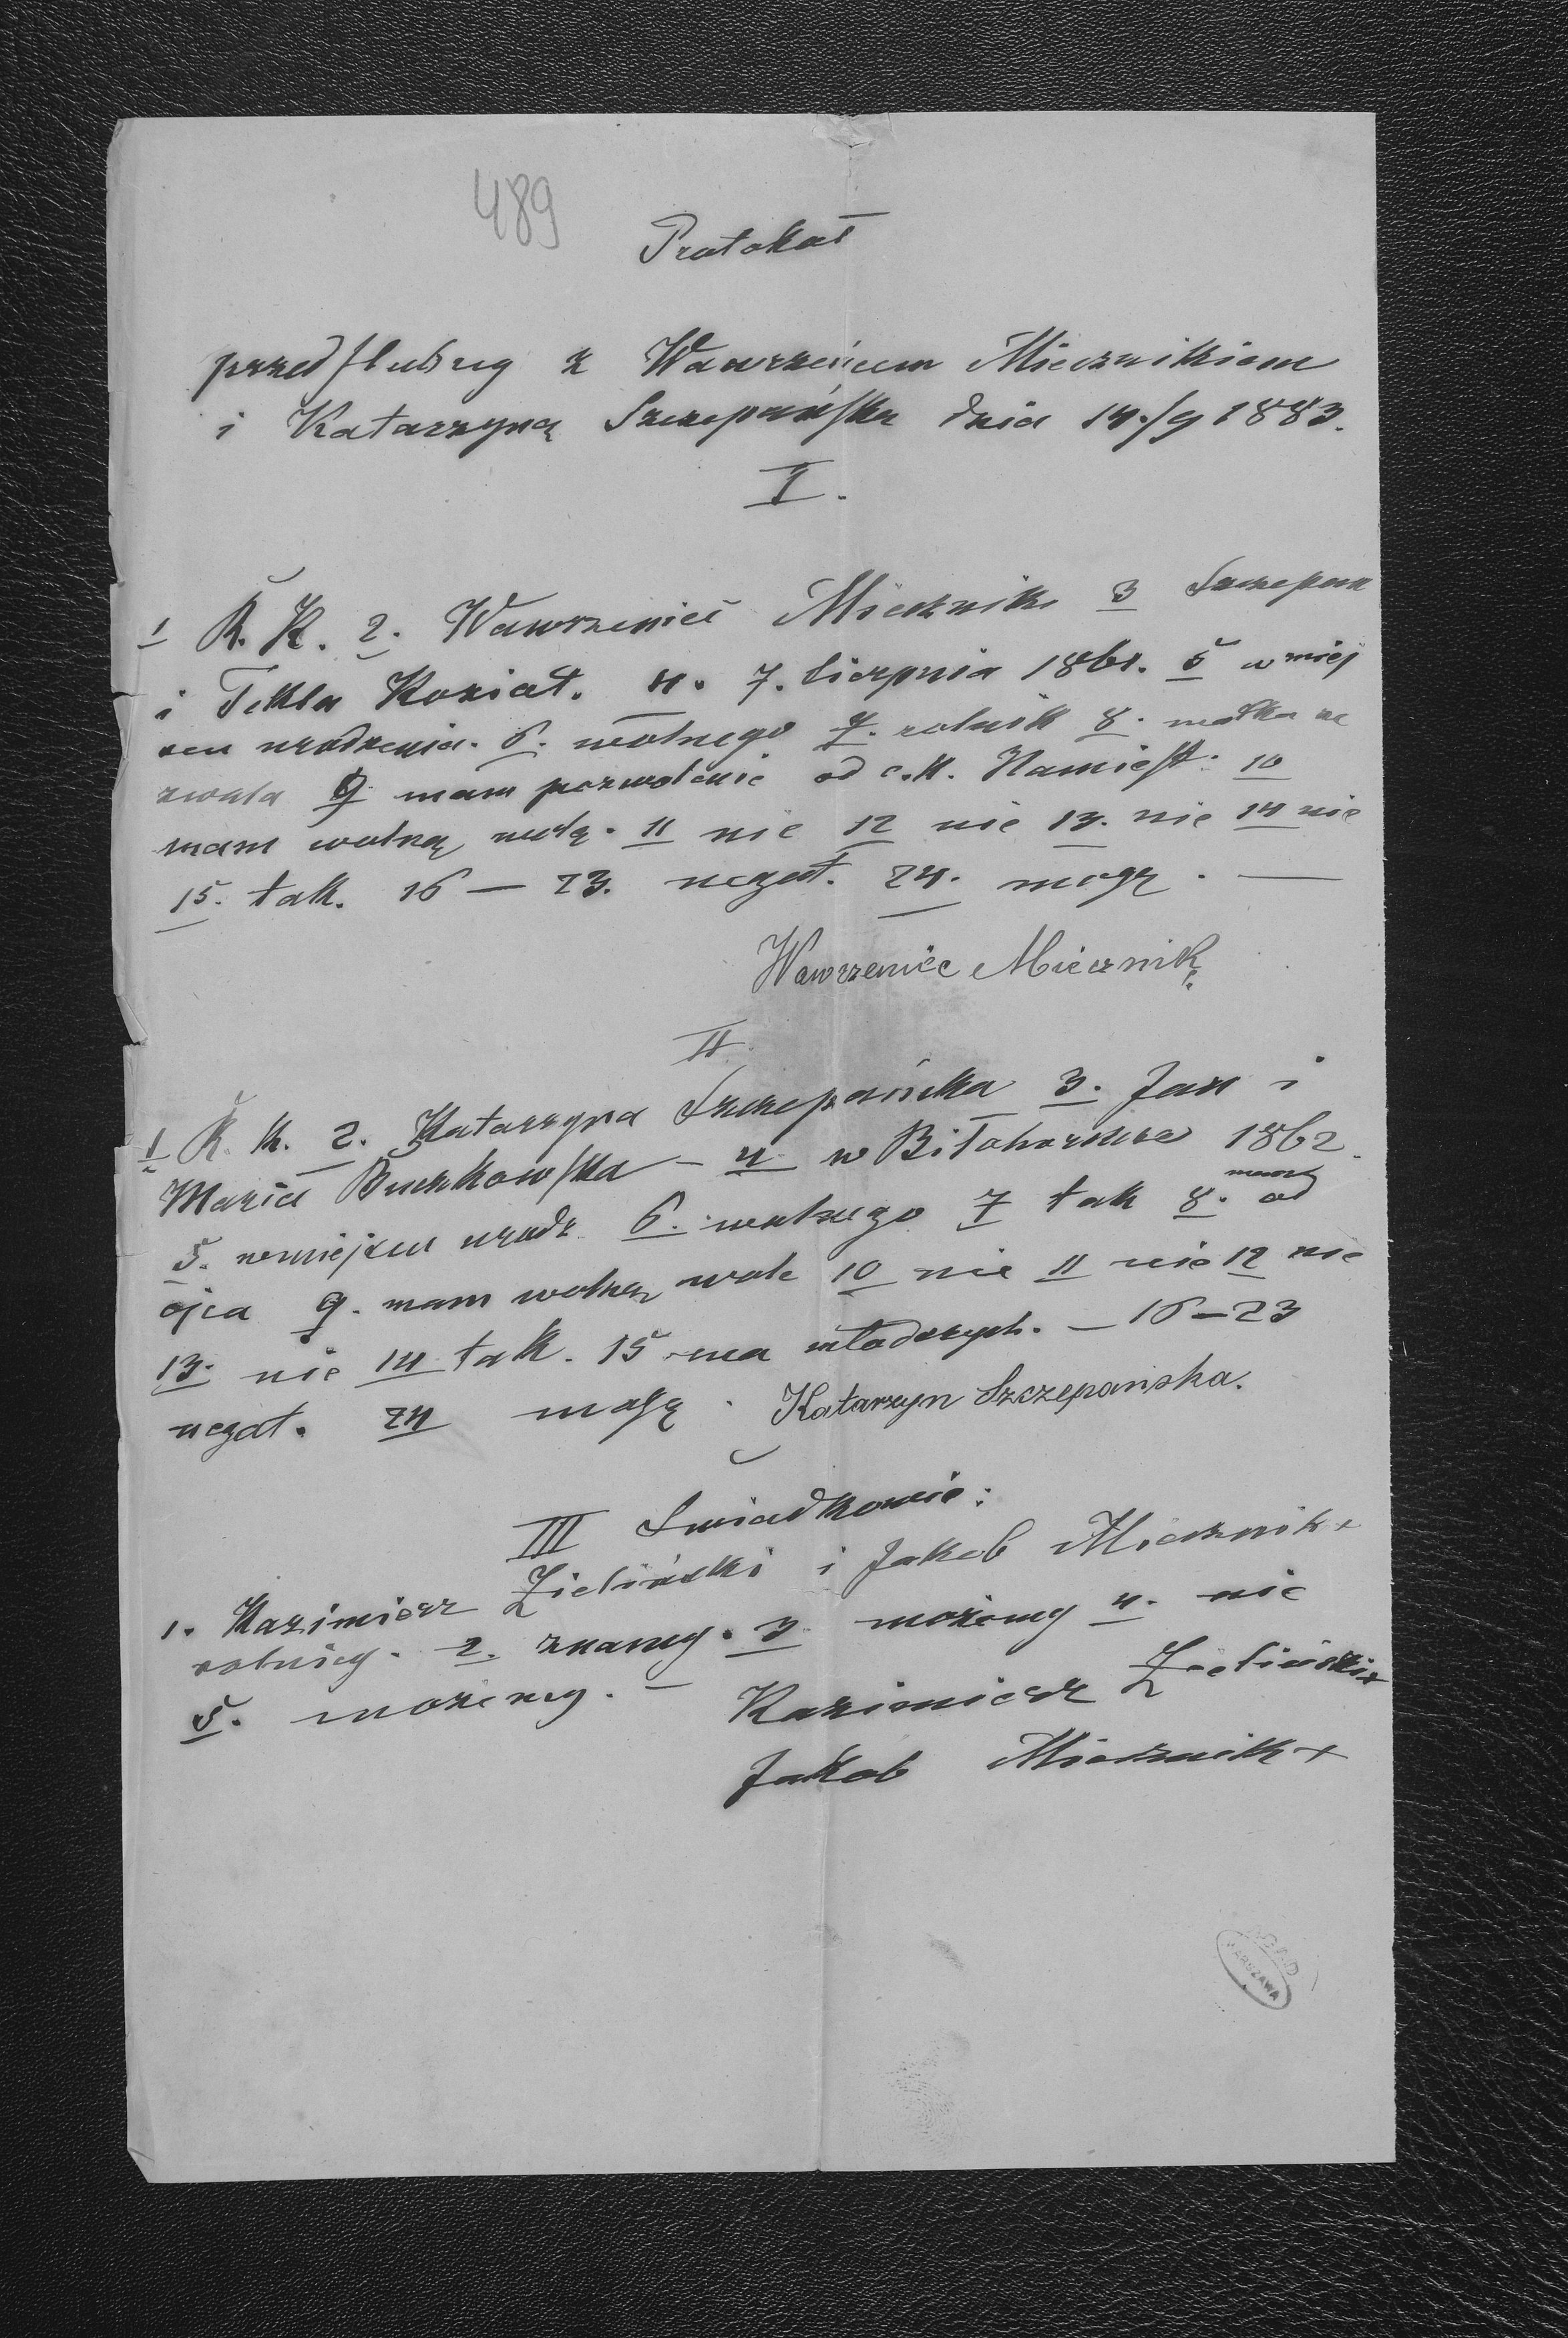 489
Protokół
przedślubny z Wawrzeńcem Miecznikiem
i Katarzyną Szczepańską dnia 14./9 1883.
I.
1 R. K. 2. Wawrzeniec Miecznik 3 Szczepan
i Tekla Koziat. 4. 7. sierpnia 1861. 5 w miej
scu urodzenia. 6. wolnego 7. rolnik 8. matka ze
zwala 9 mam pozwolenie od c. k. Namiest. 10
mam wolną wolę. 11 nie 12 nie 13. nie 14 nie
15. tak. 16 — 23. negat. 24. mogę. —
Wawrzeniec Miecznik.
II.
1 R. k. 2. Katarzyna Szczepańska 3. Jan i
Maria Buczkowska - 4 w Biłohorszcze 1862.
5. w miejscu urodz. 6. wolnego 7 tak 8. mam od
ojca 9. mam wolną wolę 10 nie 11 nie 12 nie
13. nie 14 tak. 15 ma młodszych. — 16 — 23
negat. 24 mogę. Katarzyn Szczepańska.
III Świadkowie:
1. Kazimierz Zieliński i Jakób Miecznik +
rolnicy. 2. znamy. 3 możemy 4. nie
5. możemy. — Kazimierz Zieliński +
Jakób Miecznik +
AGAD
WARSZAWA